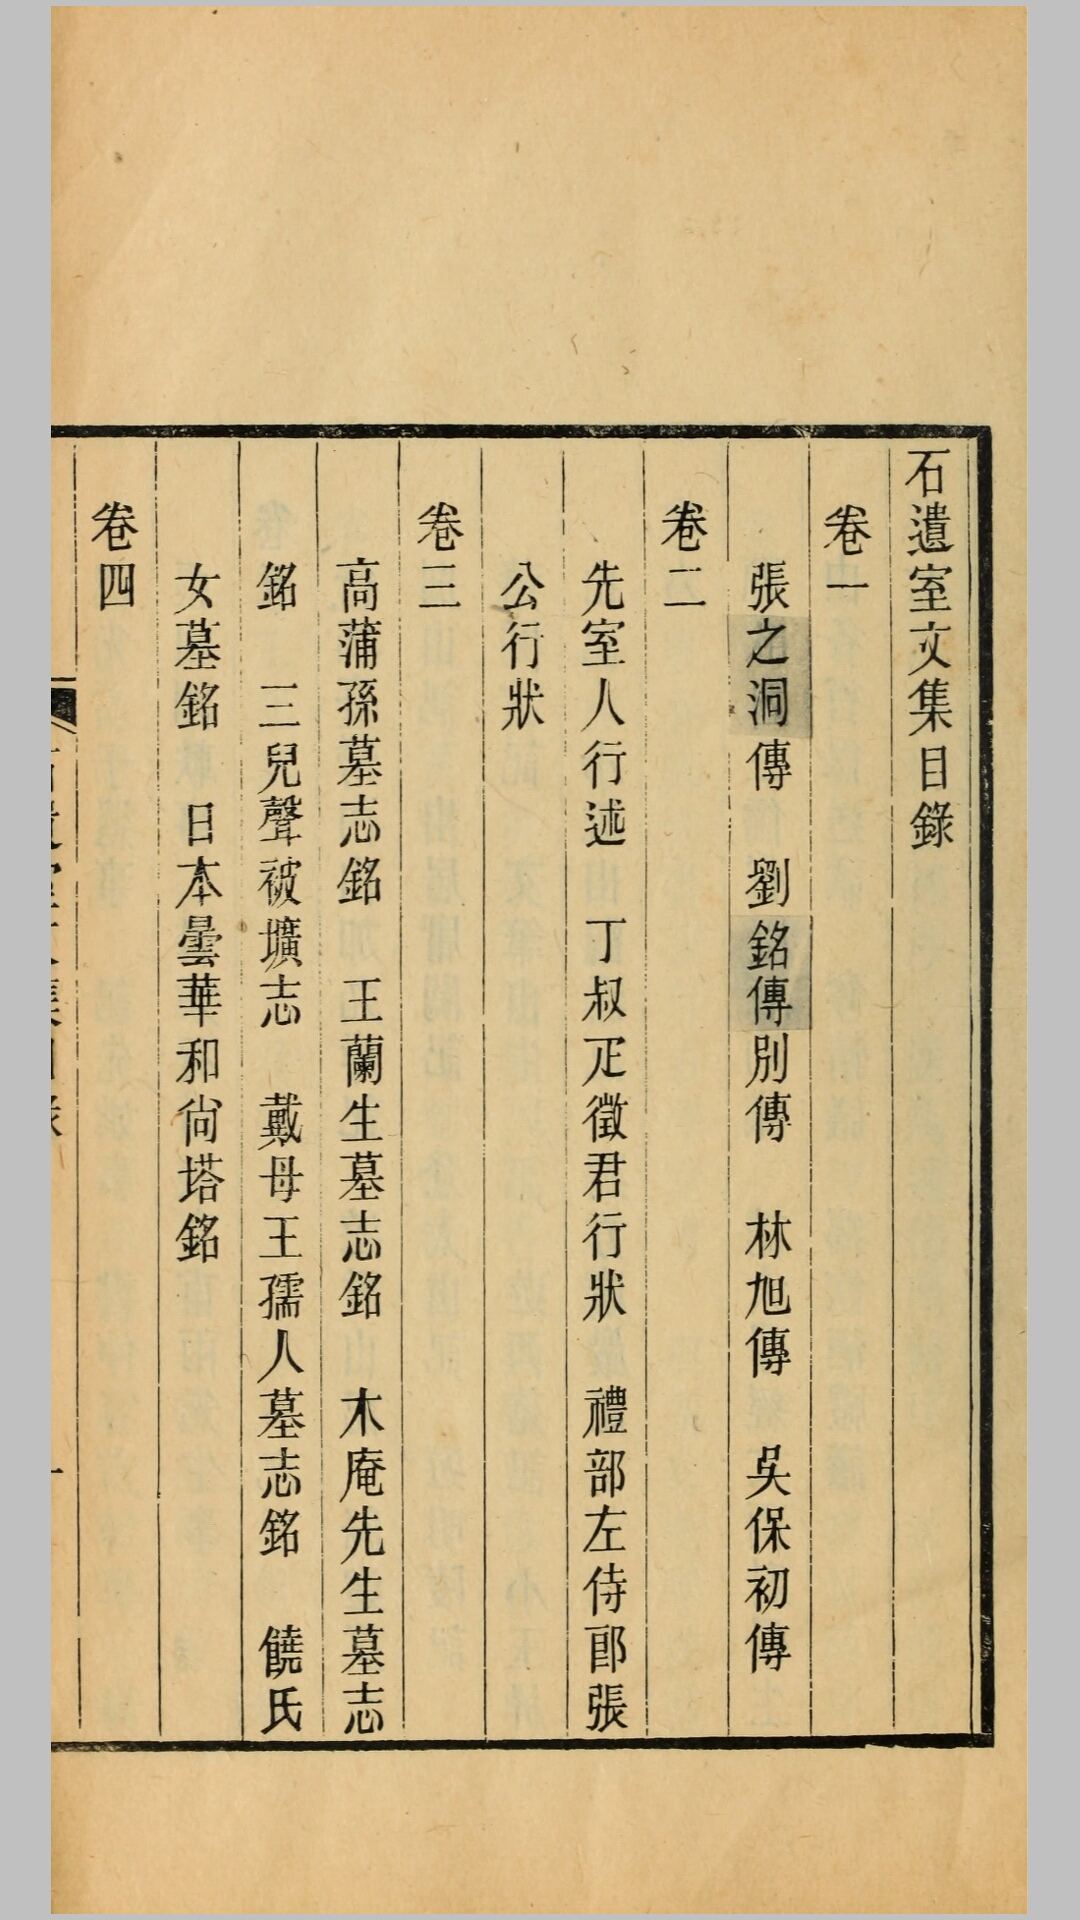 石遺室文集目錄
卷一
張之洞傳　劉銘傳別傳　林旭傳　吳保初傳
卷二
先室人行述　丁叔疋徵君行狀　禮部左侍郎張
公行狀
卷三
高蒲孫墓志銘　王蘭生墓志銘　木庵先生墓志
銘　三兒聲被壙志　戴母王孺人墓志銘　饒氏
女墓銘　日本曇華和尙塔銘
卷四